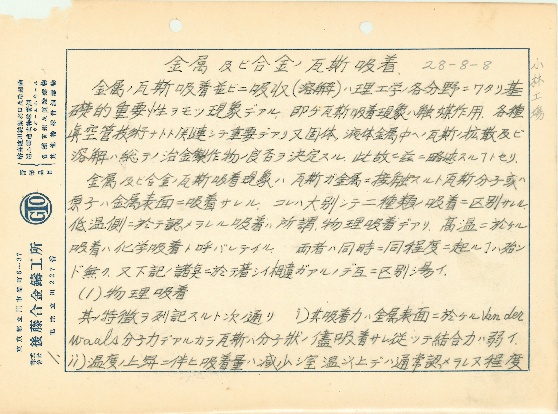 金属及ビ合金ノ瓦斯吸着. 28-8-8
小林工場
金属ノ瓦斯吸着並ビニ吸収(溶解)ハ理工学ノ各分野ニワタリ基
礎的重要性ヲモツ現象デアル. 即チ瓦斯吸着現象ハ触媒作用, 各種
真空管技術ナドト関連シテ重要デアリ又固体, 液体金属中ヘノ瓦斯ノ拡散及ビ
溶解ハ総テノ冶金製作物ノ良否ヲ決定スル. 此故ニ茲ニ略述スルコトトセリ.
金属及ビ合金ノ瓦斯吸着現象ハ瓦斯ガ金属ニ接触スルト瓦斯分子或ハ
原子ハ金属表面ニ吸着サレル. コレハ大別シテ二種類ノ吸着ニ区別サレ
低温側ニ於テ認メラレル吸着ハ所謂物理吸着デアリ, 高温ニ於ケル
吸着ハ化学吸着ト呼バレテイル. 両者ハ同時ニ同程度ニ起ルコトハ殆ン
ド無ク, 又下記ノ諸点ニ於テ著シイ相違ガアルノデ互ニ区別シ易イ.
(1) 物理吸着
其ノ特徴ヲ列記スルト次ノ通リ i)其吸着力ハ金属表面ニ於ケル Van der
waals 分子力デアルカラ瓦斯ハ分子状ノ儘吸着サレ従ッテ結合力ハ弱イ.
ii)温度ノ上昇ニ伴ヒ吸着量ハ減少シ室温以上デハ通常認メラレヌ程度
GTO
株式会社 後藤合金鋳工所
東京都立川市曙町 6-37
電話立川 227番
1.